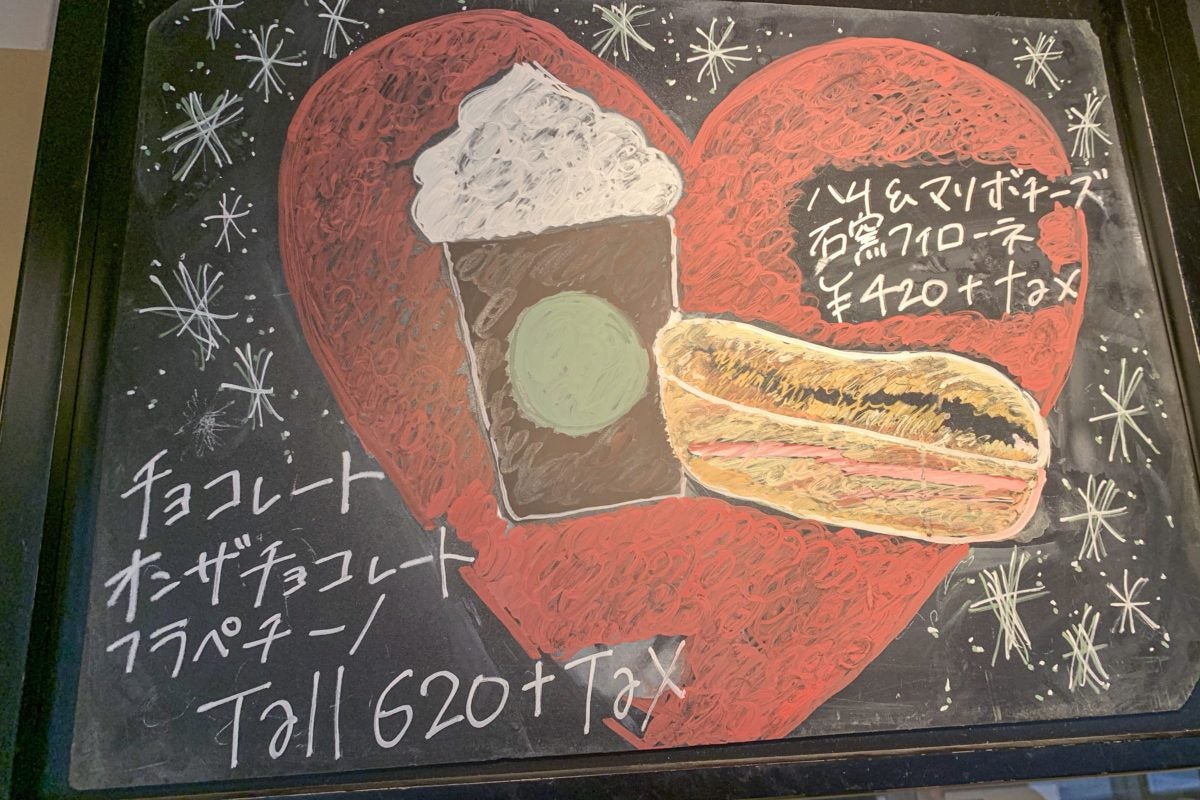 ハム&マリボチーズ
石窯フィローネ
¥420+tax
チョコレート
オンザチョコレート
フラペチーノ
Tall 620+Tax